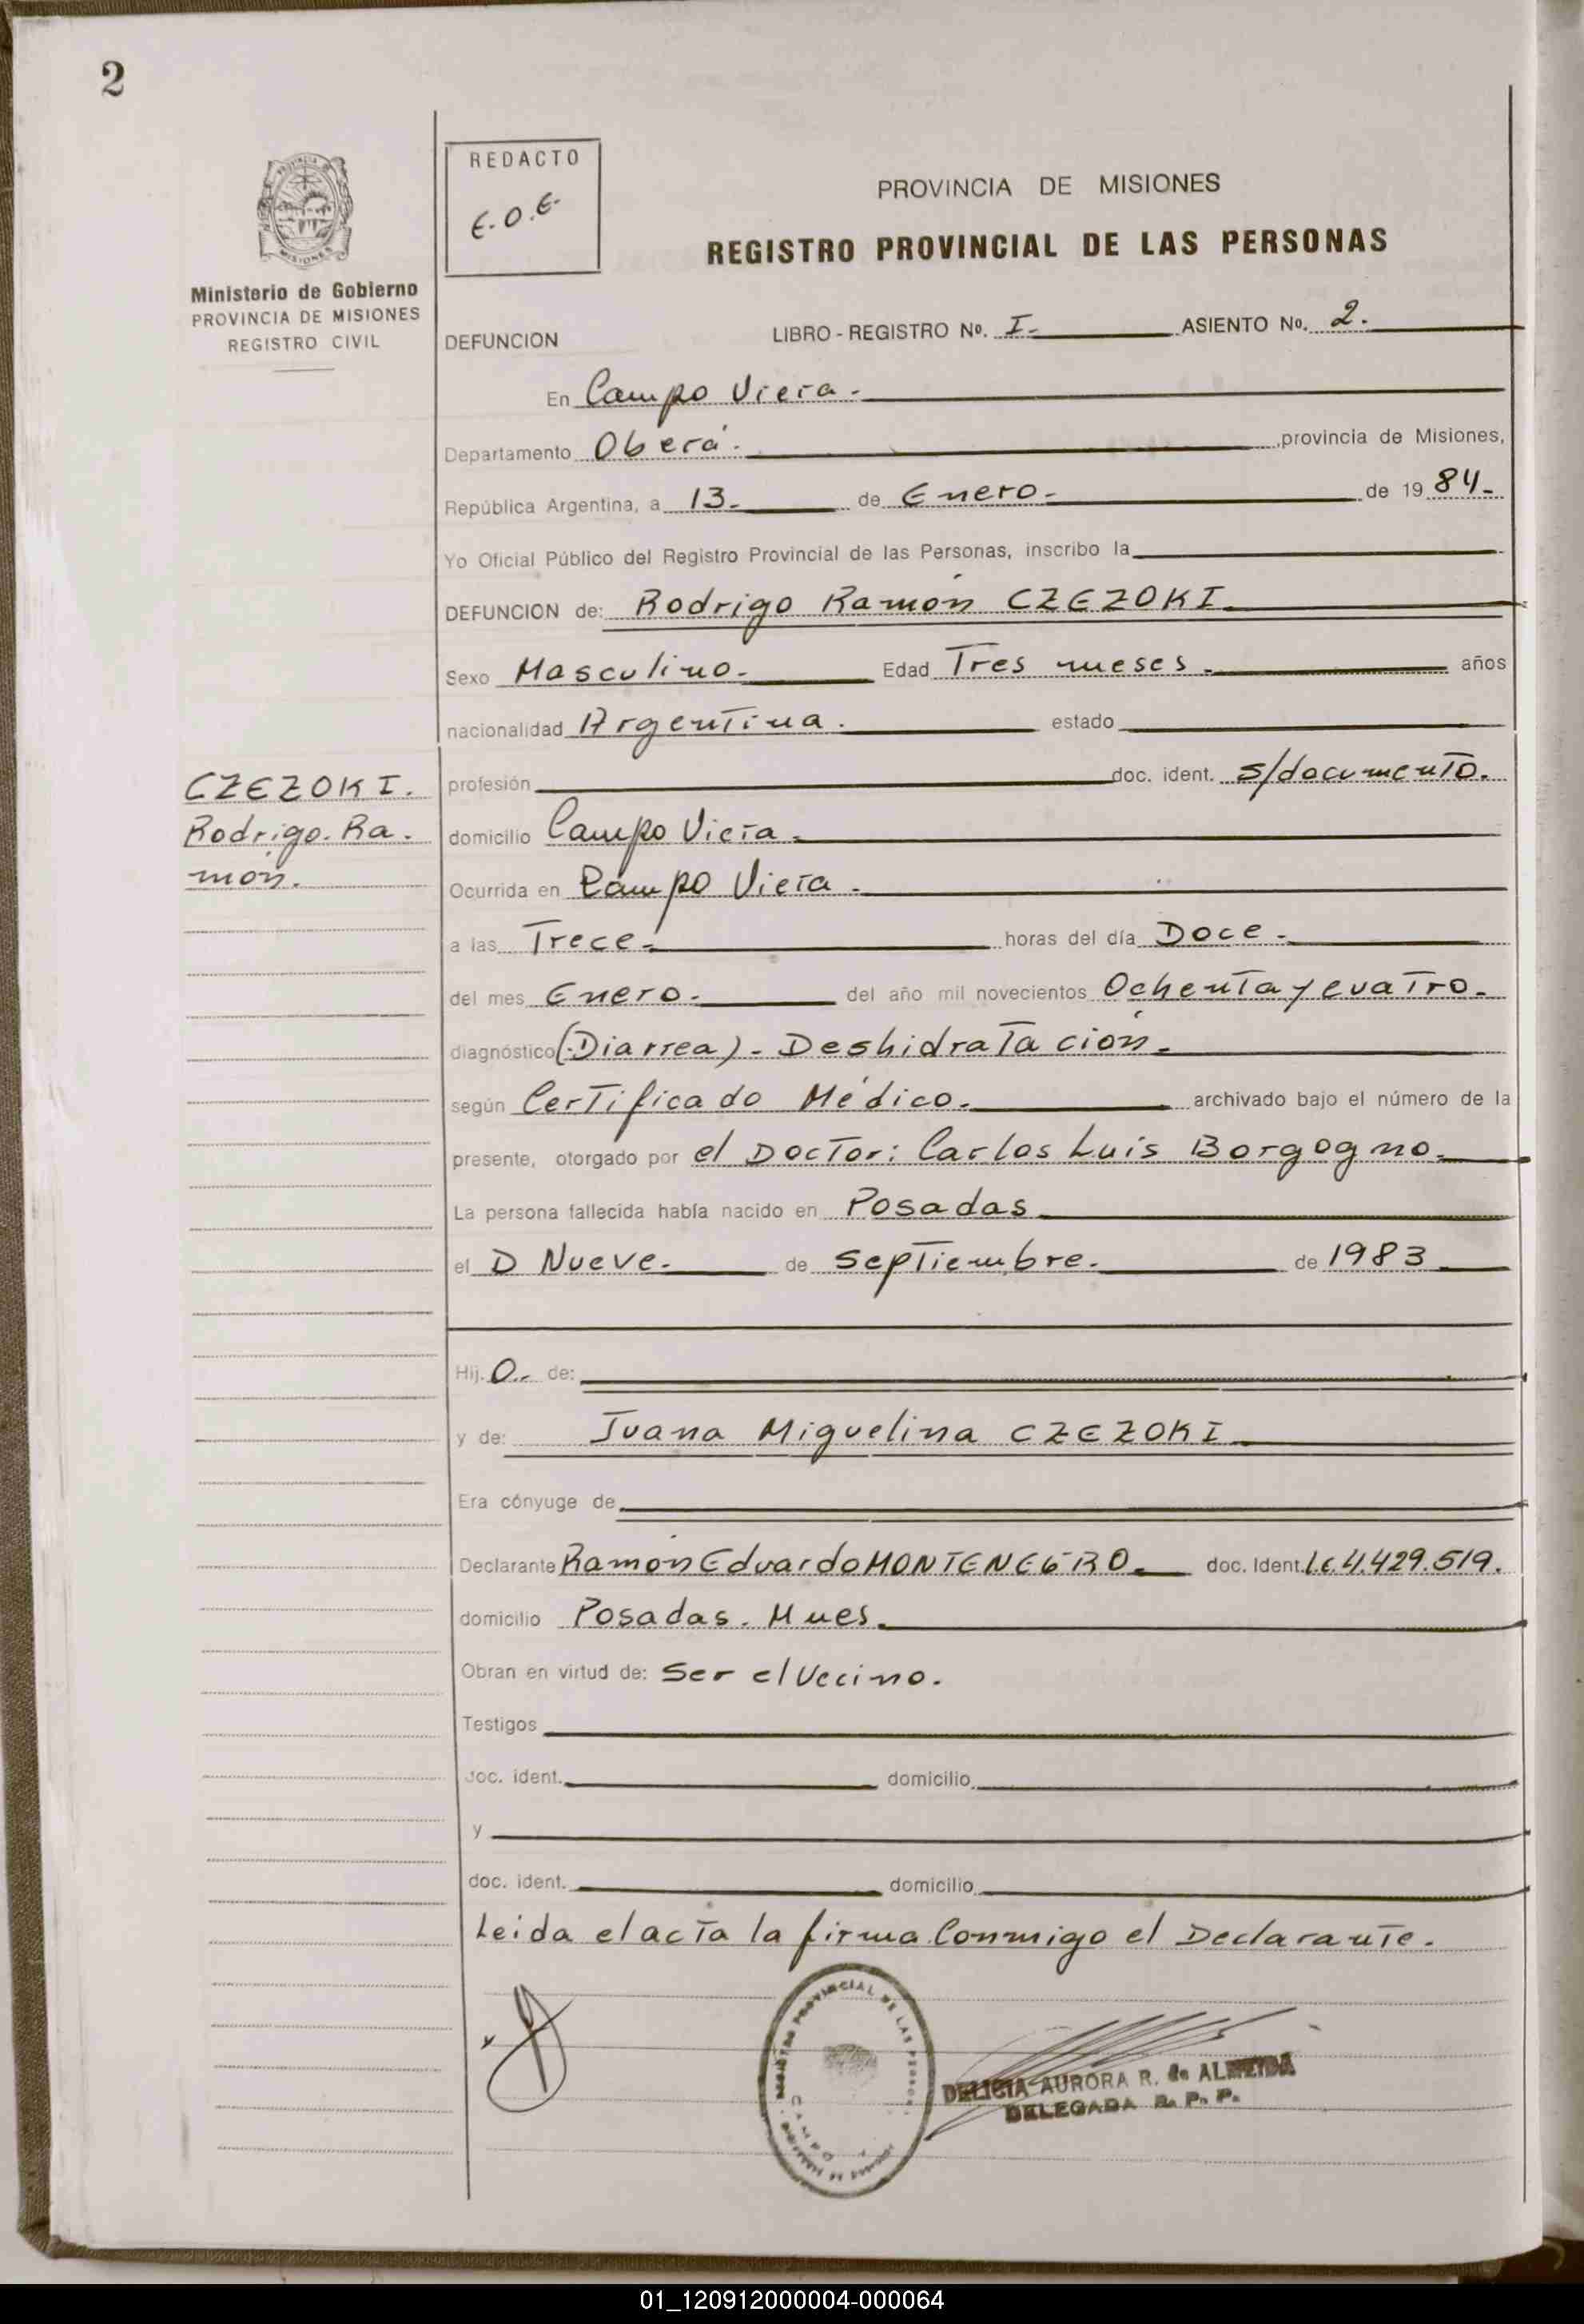 2
REDACTO
E.O.E.
PROVINCIA DE MISIONES
REGISTRO PROVINCIAL DE LAS PERSONAS
Ministerio de Gobierno
PROVINCIA DE MISIONES
REGISTRO CIVIL
DEFUNCION LIBRO - REGISTRO No. I.- ASIENTO No. 2.
En Campo Viera.-
Departamento Oberá.- provincia de Misiones,
República Argentina, a 13.- de Enero.- de 1984.-
Yo Oficial Público del Registro Provincial de las Personas, inscribo la
DEFUNCION de: Rodrigo Ramón CZEZOKI
Sexo Masculino.- Edad Tres meses.- años
nacionalidad Argentina.- estado
CZEZOKI.
Rodrigo. Ra.
món.
profesión doc. ident. s/documento.
domicilio Campo Viera.-
Ocurrida en Campo Viera.-
a las Trece.- horas del día Doce.-
del mes Enero.- del año mil novecientos Ochenta y cuatro.-
diagnóstico (Diarrea).- Deshidratación.-
según Certificado Médico.- archivado bajo el número de la
presente, otorgado por el Doctor: Carlos Luis Borgogno.-
La persona fallecida había nacido en Posadas
el D Nueve.- de Septiembre.- de 1983
Hij. O.- de:
y de: Juana Miguelina CZEZOKI
Era cónyuge de
Declarante Ramón Eduardo MONTENEGRO.- doc. Ident. L.E.4.429.519.
domicilio Posadas. Mnes.
Obran en virtud de: Ser el Vecino.
Testigos
doc. ident. domicilio
y
doc. ident. domicilio
Leida el acta la firma Conmigo el Declarante.
REGISTRO PROVINCIAL DE LAS PERSON.
CAMPO
DELICIA AURORA R. de ALMEIDA
DELEGADA R. P. P.
01_120912000004-000064